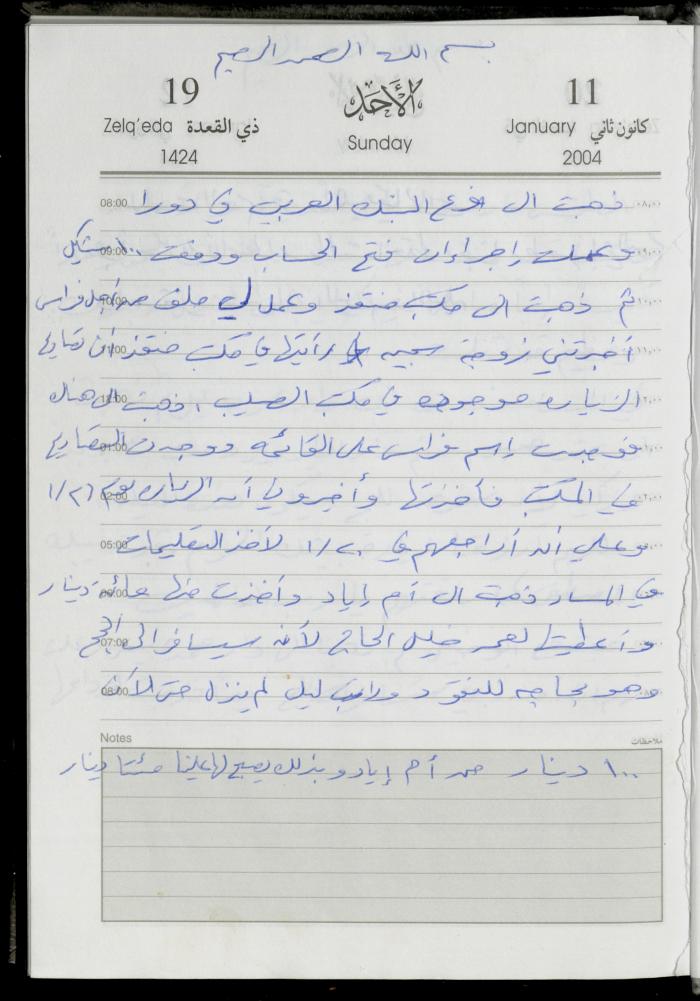 بسم الله الرحمن الرحيم
19 الأحد 11
Zelq'eda ذي القعدة Sunday January كانون ثاني
1424 2004
08:00 ذهبت الى فرع البنك العربي في دورا
09:00 وعملت إجراءات فتح الحساب ودفعت ١٠٠ شيكل
ثم ذهبت الى مكتب منقذ وعمل لي ملف من أجل فراس
أخبرتني زوجة سجين رأيتها في مكتب منقذ أن تصاريح
الزيارة موجودة في مكتب الصليب، ذهبت الى هناك
01:00 فوجدت إسم فراس على القائمة ووجدت التصاريح
02:00 في المكتب فأخذتها وأخبروني أن الزيارة يوم ١/٢٦
05:00 وعلي أن أراجعهم في ١/٢٠ لأخذ التعليمات
06:00 في المساء ذهبت الى أم إياد وأخذت منها مائة دينار
07:00 وأعطيتها لعمر خليل الحاج لأنه سيسافر الى الحج
08:00 وهو بحاجة للنقود وراتب ليل لم ينزل حتى الآن
Notes ملاحظات
١٠٠ دينار من أم إياد وبذلك يصبح لها علينا مئتا دينار